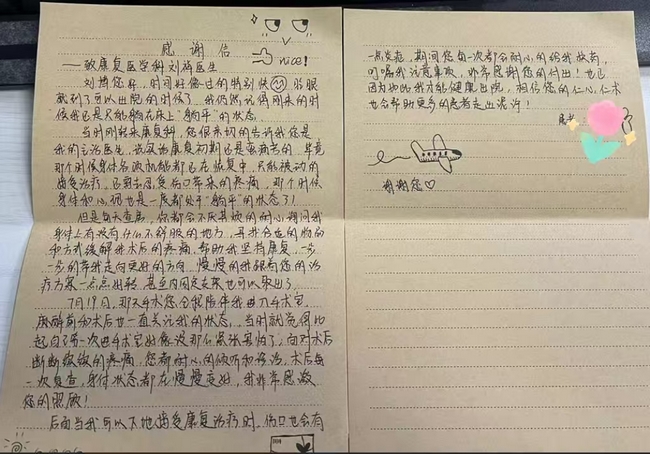 感谢信
nice!
——致康复医学科刘祥医生
刘博您好，时间好像过的特别快 转眼
就到了可以出院的时候了，我仍然记得刚来的时
候我还是只能躺在床上"躺平"的状态。
当时刚转来康复科，您很亲切的告诉我您是
我的主治医生，说实话康复初期还是蛮痛苦的，毕竟
那个时候身体各项机能都还在恢复中，只能被动的
接受治疗，还要去忍受伤口带来的疼痛，那个时候
身体和心理也是一度都处于"躺平"的状态了！
但是每天查房，您都会不厌其烦的耐心询问我
身体上有没有什么不舒服的地方，寻找合适的物品
和方式缓解我术后的疼痛，帮助我坚持康复，一步
一步的带我走向更好的方向，慢慢的我跟着您的治
疗方案一点点好转，甚至内固定支架也可以取出了。
7月19日，那天手术您全程陪伴我进入手术室，
麻醉前和术后也一直关注我的状态，当时就觉得比
起自己第一次进手术室好像没那么紧张害怕了，面对术后
断断续续的疼痛，您都耐心的倾听和移治，术后每
一次复查，身体状态都在慢慢变好，我非常感激
您的照顾！
后面当我可以下地接受康复治疗时，伤口也会有
一点发炎，期间您每一次都会耐心的给我换药，
叮嘱我注意事项，非常感谢您的付出！也正
因为如此我才能健康出院，相信您的仁心仁术
也会帮助更多的患者走出泥泞！
谢谢您♡